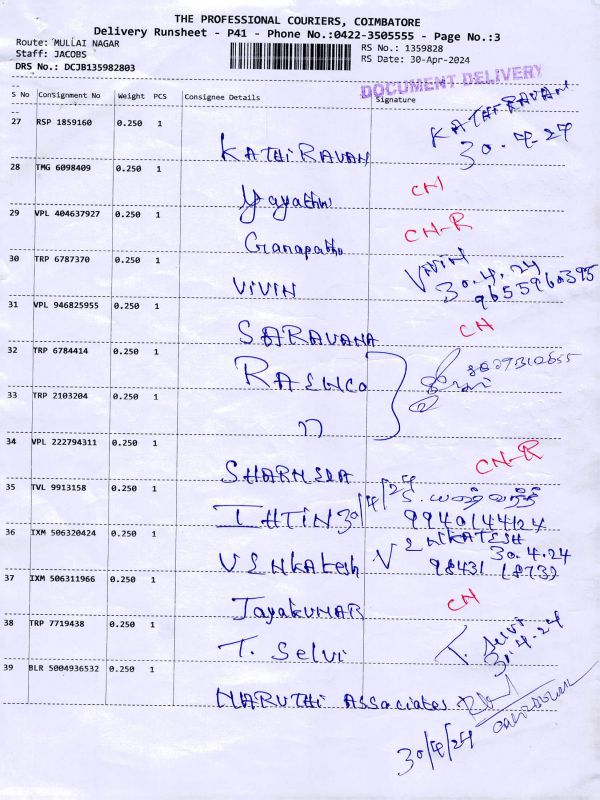 THE PROFESSIONAL COURIERS, COIMBATORE
Delivery Runsheet - P41 - Phone No.:0422-3505555 - Page No.:3
Route: MULLAI NAGAR
Staff: JACOBS
DRS No.: DCJB135982803
RS No.: 1359828
RS Date: 30-Apr-2024
DOCUMENT DELIVERY
S No Consignment No Weight PCS Consignee Details Signature
27 RSP 1859160 0.250 1 KATHIRAVAN KATHIRAVAN
30.4.24
28 TMG 6098409 0.250 1 CN
29 VPL 404637927 0.250 1 CN-R
30 TRP 6787370 0.250 1 VIVIN VIVIN
30.4.24
9655960395
31 VPL 946825955 0.250 1 SARAVANA CN
32 TRP 6784414 0.250 1
33 TRP 2103204 0.250 1
34 VPL 222794311 0.250 1 CN-R
35 TVL 9913158 0.250 1 30/4/24
9940144124
36 IXM 506320424 0.250 1 VENKATESH VENKATESH
30.4.24
98431 18739
37 IXM 506311966 0.250 1 JayaKUMAR CN
38 TRP 7719438 0.250 1 T. Selvi T. Selvi
30.4.24
39 BLR 5004936532 0.250 1 MARUTHI Associates
30/4/24